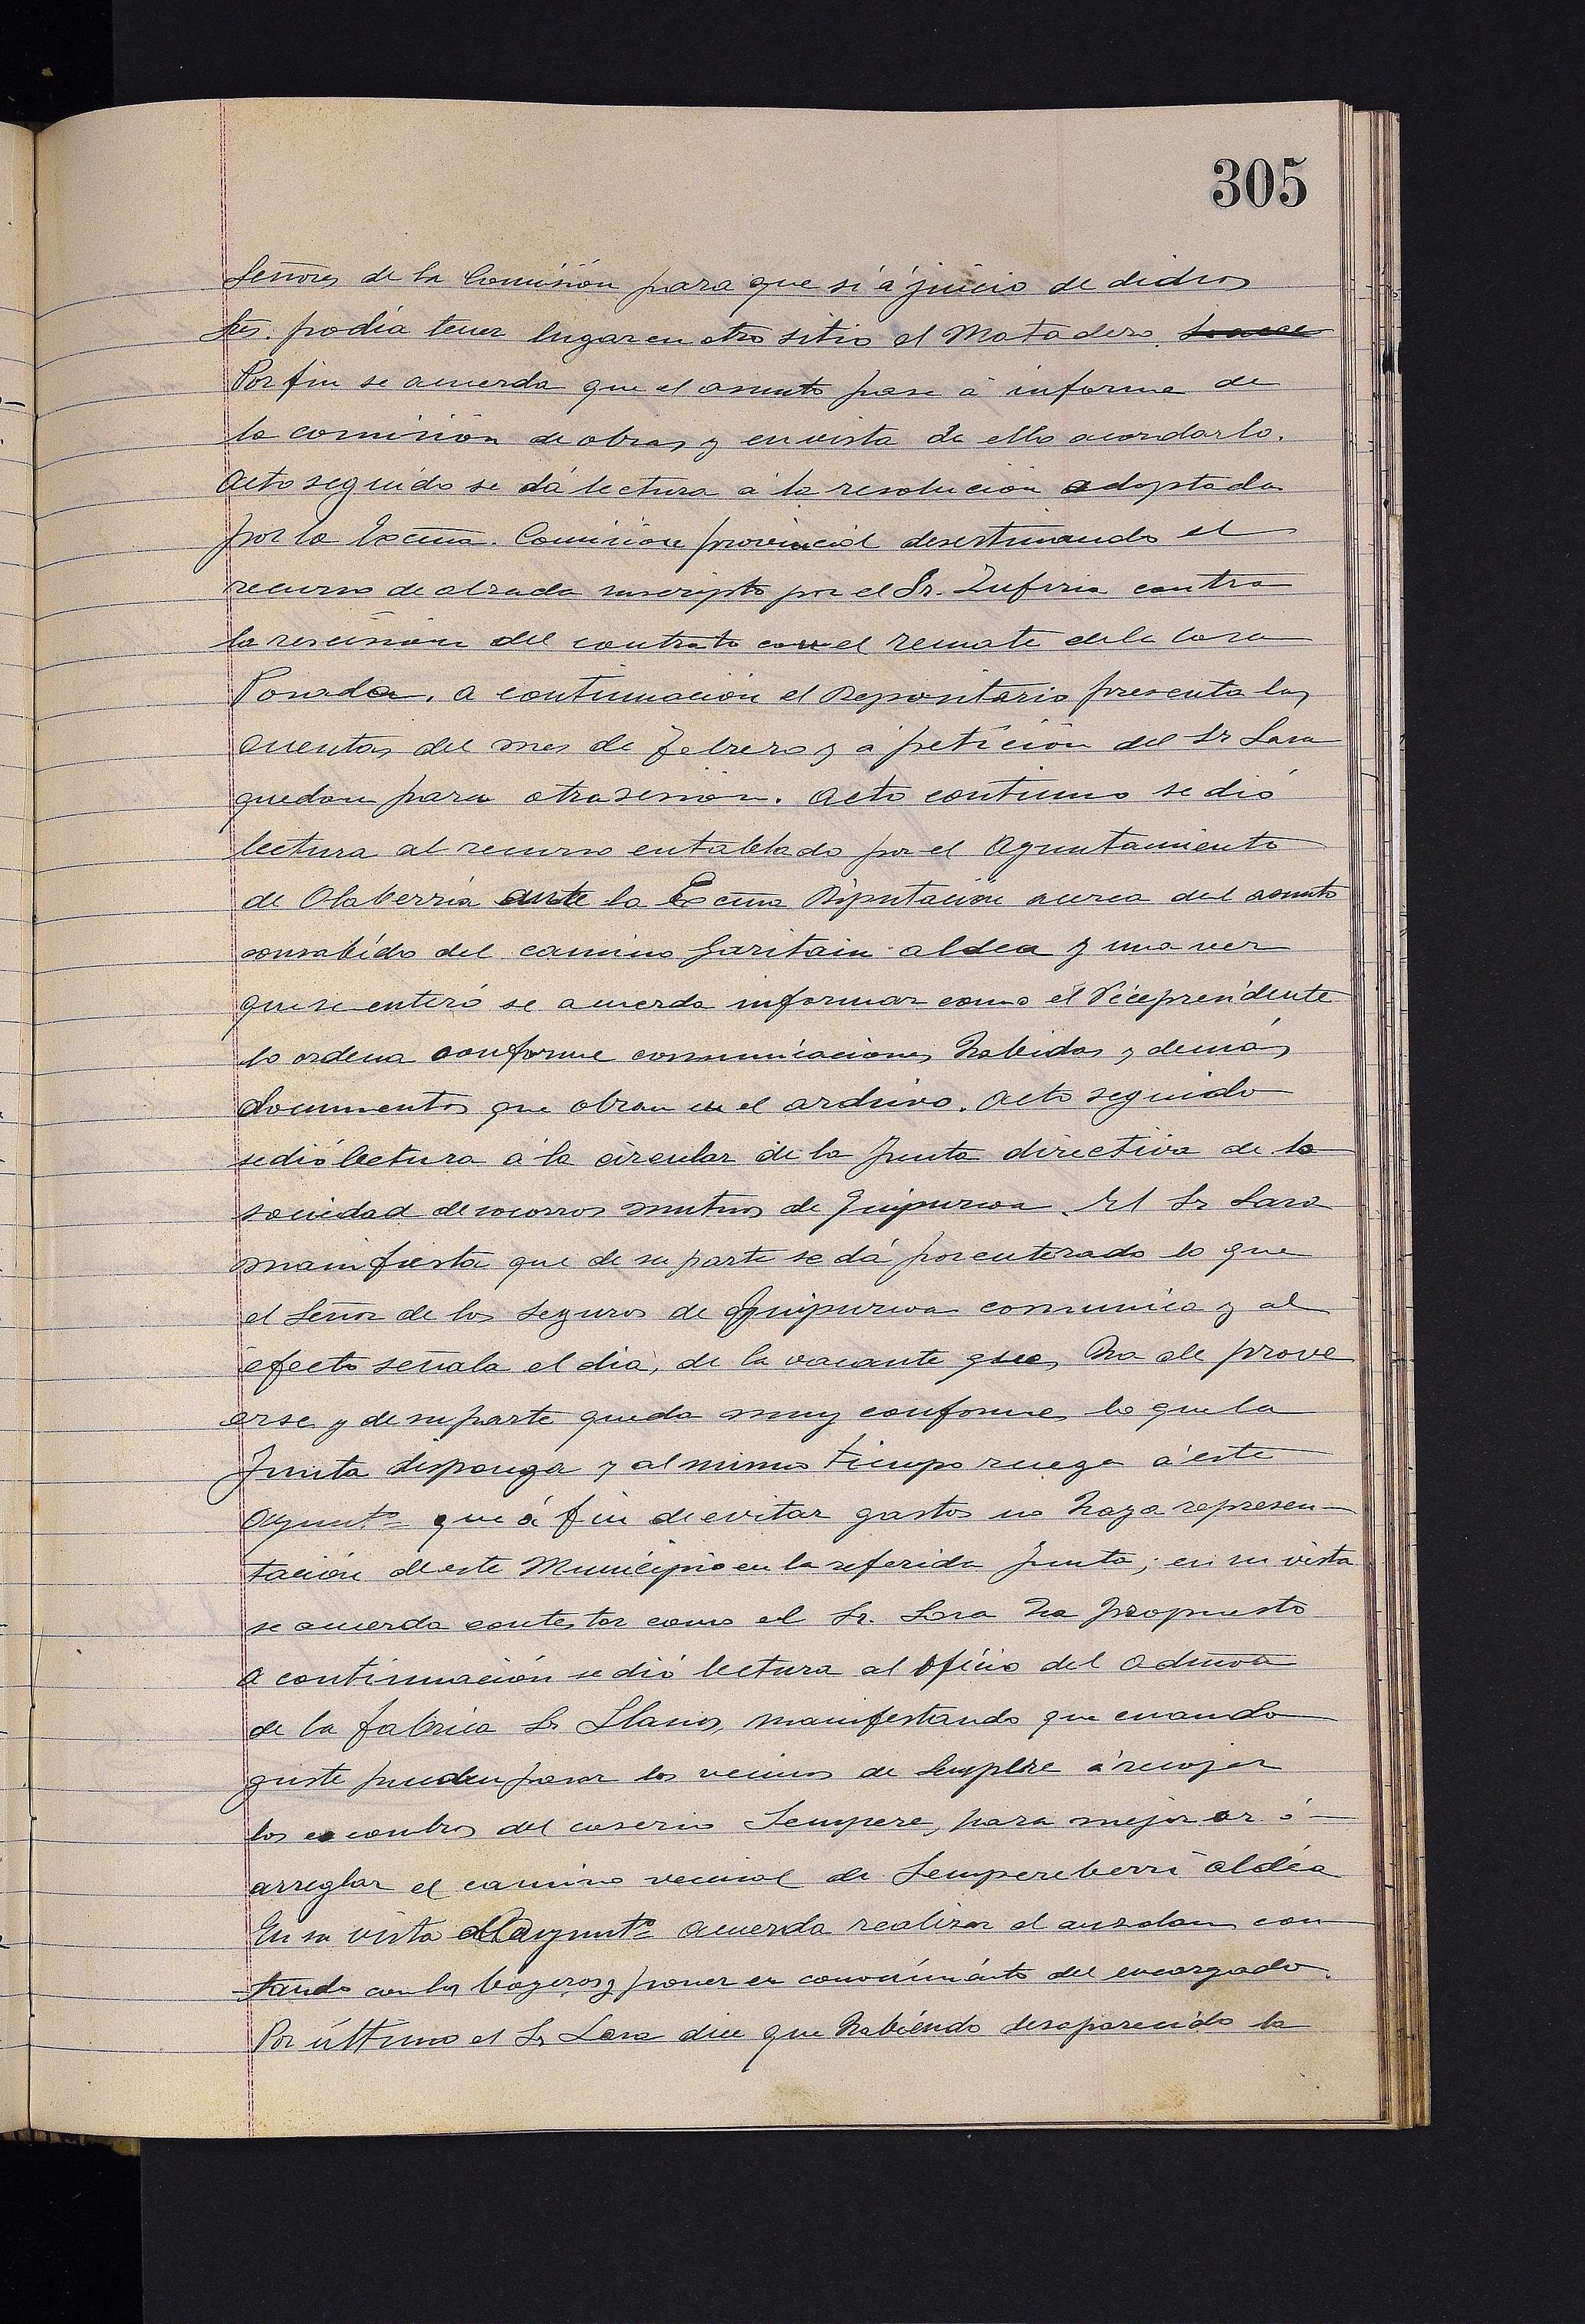 305
Señores de la Comisión para que si á juicio de dichos
Sres. podía tener lugar en otro sitio el Matadero.
Por fin se acuerda que el asunto pase á informe de
la comisión de obras y en vista de ello acordarlo.
Acto seguido se dá lectura á la resolución adoptada
por la Excma. Comisión provincial desestimando el
recurso de alzada suscripto por el Sr. Zufiria contra
la rescisión del contrato con el remate de la Casa
Posada. A continuación el Depositario presenta las
cuentas del mes de Febrero y á petición del Sr Lasa
quedan para otra sesión. Acto continuo se dió
lectura al recurso entablado por el Ayuntamiento
de Olaberria ante la Excma Diputación acerca del asunto
consabido del camino Garitain aldea y una vez
que se enteró se acuerda informar como el Vicepresidente
lo ordena conforme comunicaciones habidas y demás
documentos que obran en el archivo. Acto seguido
se dió lectura á la circular de la Junta directiva de la
sociedad de socorros mutuos de Guipuzcoa. El Sr Lasa
manifiesta que de su parte se dá por enterado lo que
el Señor de los Seguros de Guipuzcoa comunica y al
efecto señala el dia, de la vacante que, ha de prove
erse y de su parte queda muy conforme lo que la
Junta disponga y al mismo tiempo ruega á este
Ayunto que á fin de evitar gastos no haga represen-
tación de este Municipio en la referida Junta; en su vista
se acuerda contestar como el Sr. Lasa ha propuesto
A continuación se dió lectura al oficio del Admor
de la fabrica Sr Llanos, manifestando que cuando
guste pueden pasar los vecinos de Sempere á recojer
los escombros del caserio Sempere, para mejorar ó
arreglar el camino vecinal de Sempereberri aldea
En su vista el Ayunto acuerda realizar el auzolan con
tando con los boyeros y poner en conocimiento del encargado.
Por último el Sr Lasa dice que habiendo desaparecido la